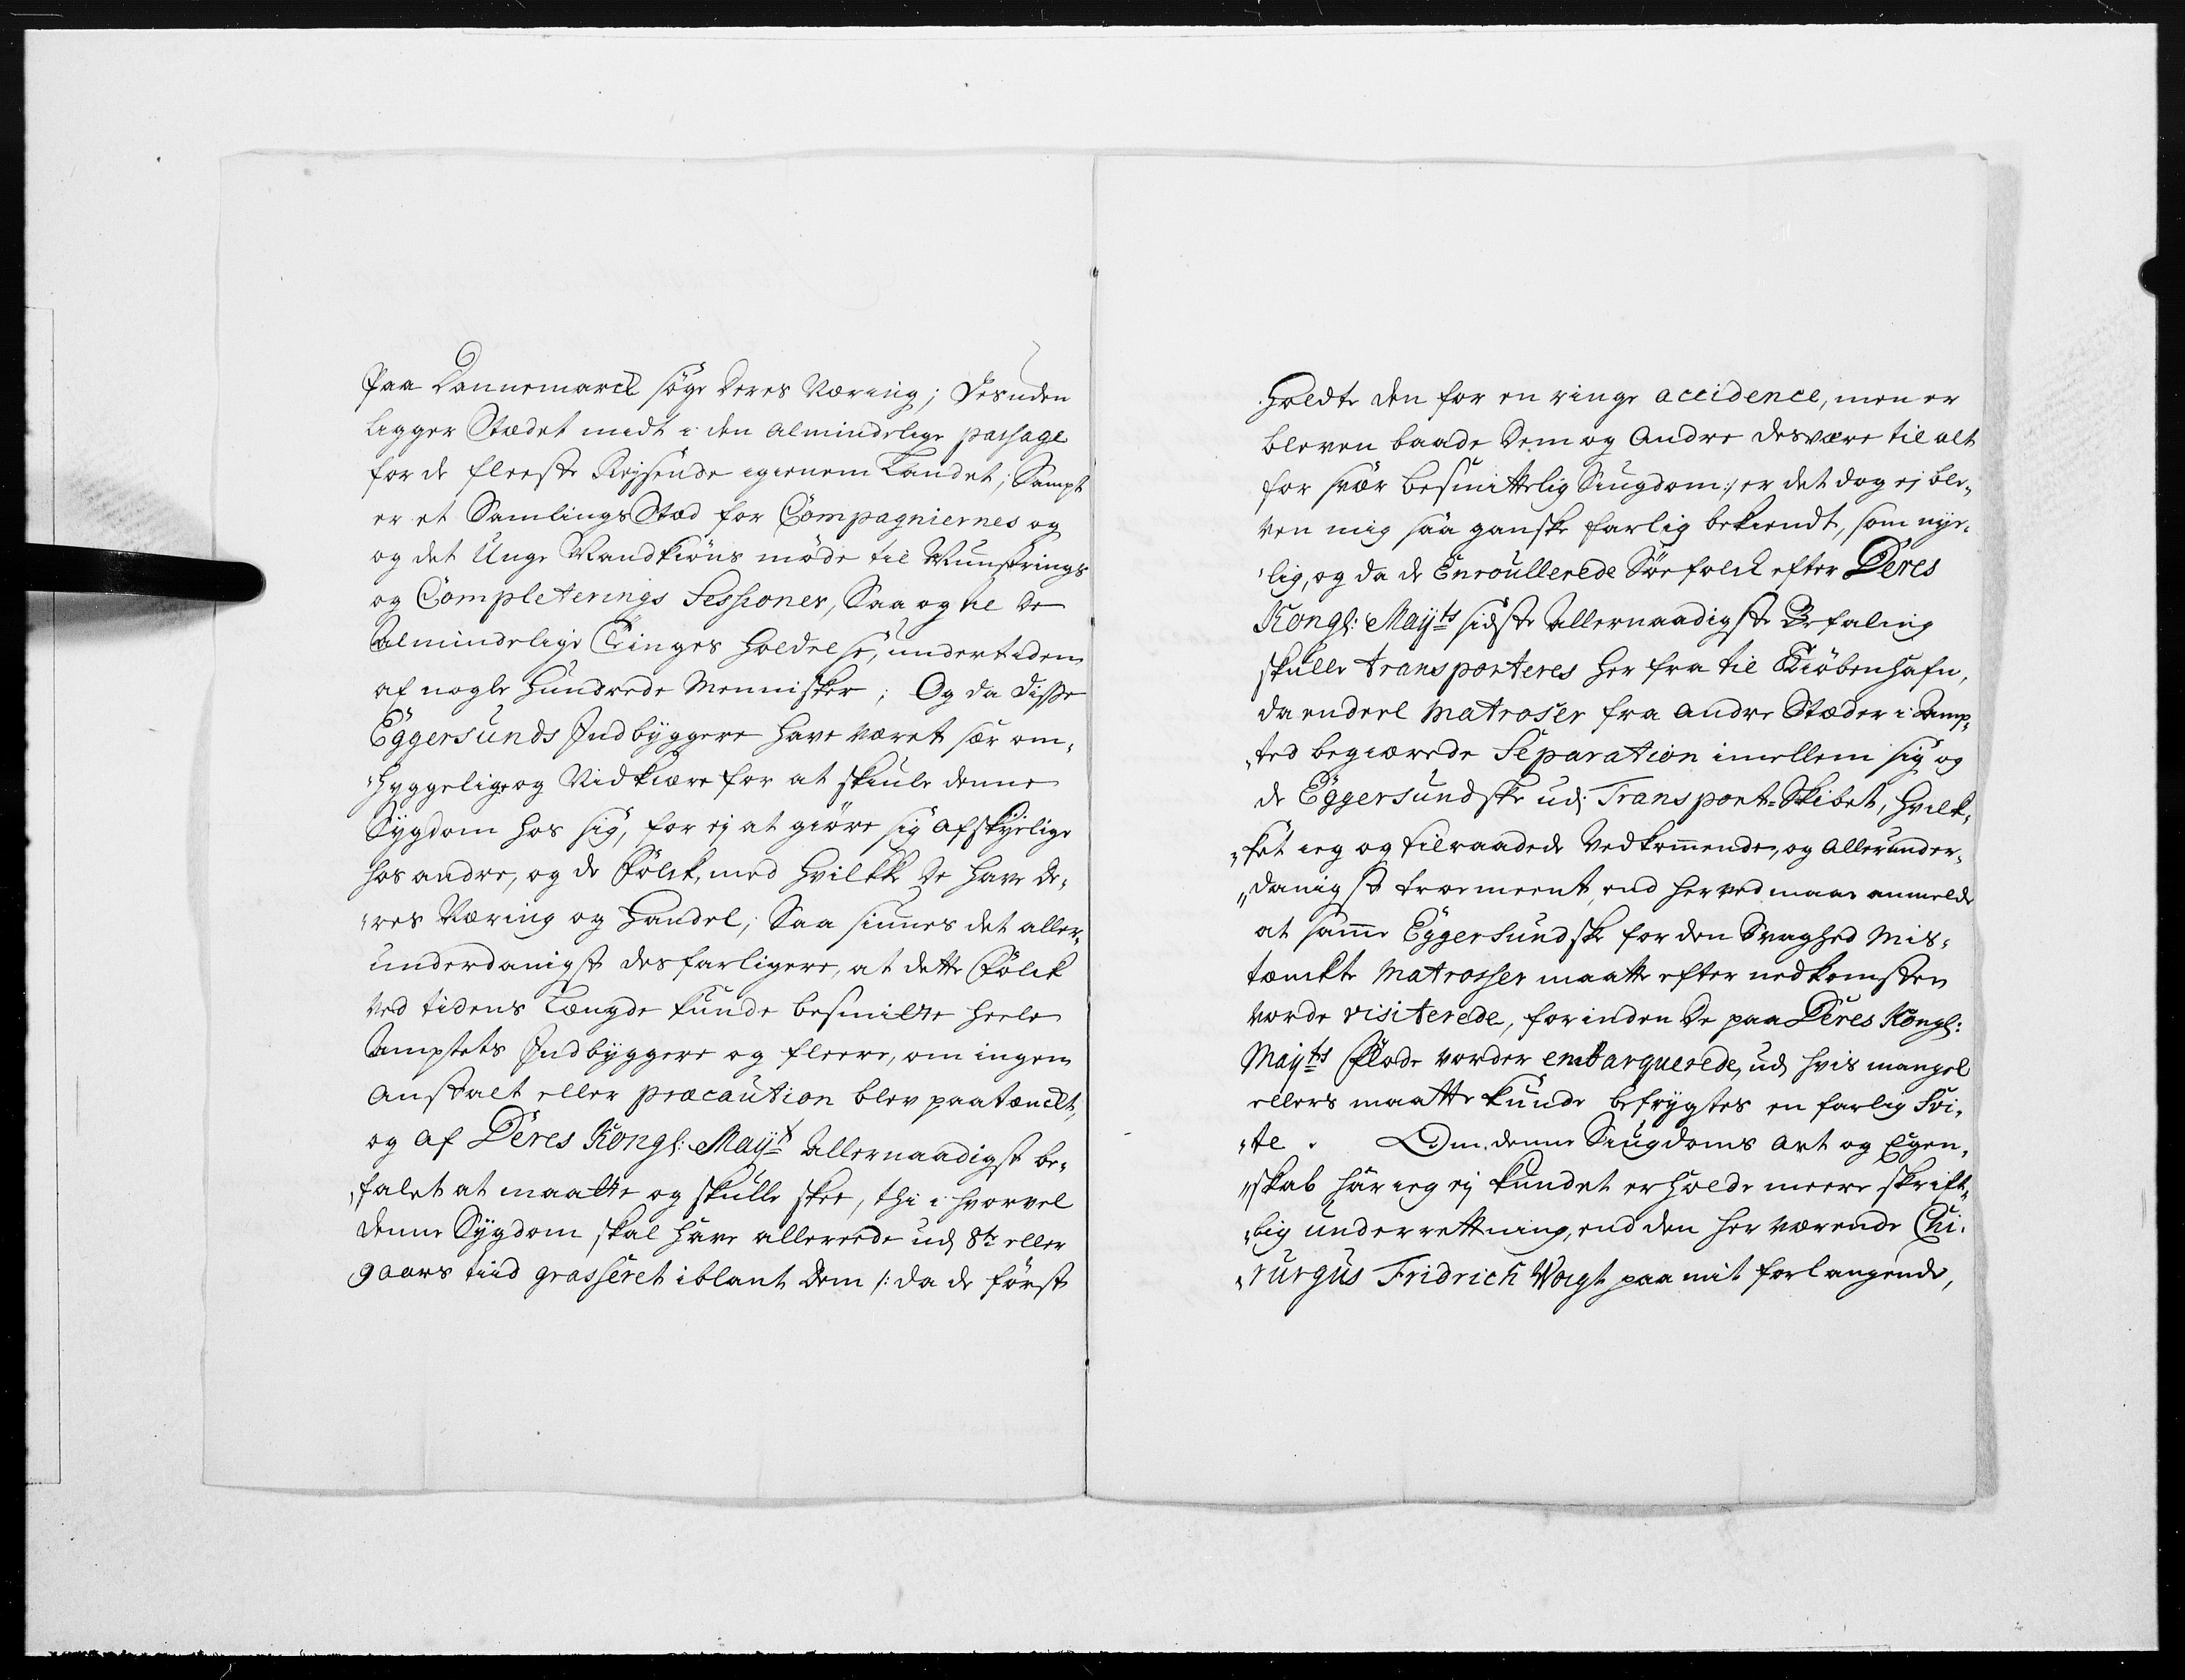 Paa Dannemarck søge deres Næring; Desuden
ligger Stædet midt i den almindelige passage
for de fleeste Reysende igienem Landet; Sampt
er et Samlings Stæd for Compagniernes og
og det Unge Mandkiøns møde til Munstrings
og Completerings Sessioner, Saa og til de
Almindelige Tinges Holdelse, undertiden
af nogle Hundrede Mennisker; Og da disse
Eggersunds Indbyggere have været sær om¬
hyggelige og Nidkiære for at skiule denne
Sygdom hos sig, for ej at giøre sig afskyelige
hos andre, og de Folck, med hvilke de have de¬
res Næring og Handel; Saa siunes det aller¬
underdanigst des farligere, at dette Folck
ved tidens Længde kunde besmitte heele
Amptets Indbyggere og fleere, om ingen
Anstalt eller præcaution blev paatænckt,
og af Deres Kongl: Mayt Allernaadigst be¬
falet at maatte og skulle skee, thi i hvorvel
denne Sygdom skal have allereede ud 8te eller
9 aars tiid grasseret iblant dem /: da de først
Holdte den for en ringe accidence, men er
bleven baade dem og Andre desvære til alt
for svær besmittelig Siugdom :/ er det dog ej ble¬
ven mig saa ganske farlig bekiendt, som nye¬
lig, og da de Enroullerede Søefolck efter Deres
Kongl: Mayts sidste Allernaadigste Befaling
skulle transporteres her fra til Kiøbenhafn,
da endeel Matroser fra andre Stæder i Amp¬
ted begiærede Separation imellem sig og
de Eggersundske udj Transport-Skibet, hvil¬
ket ieg og tilraadede Vedkommende, og Allerunder¬
danigst troe meent, end herved maae anmelde
at samme Eggersundske for den Svaghed Mis¬
tænckte Matrosser maatte efter nedkomsten
vorde visiterede, forinden de paa Deres Kongl:
Mayts Flode vorder embarquerede, udj hvis mangel
ellers maatte kunde befrygtes en farlig Svi¬
te. Om denne Siugdoms Art og Egen¬
skab har ieg ej kundet erholde meere skrift¬
lig underrettning, end den her værende Chi¬
rurgus Fridrich Voigt paa mit forlangende,